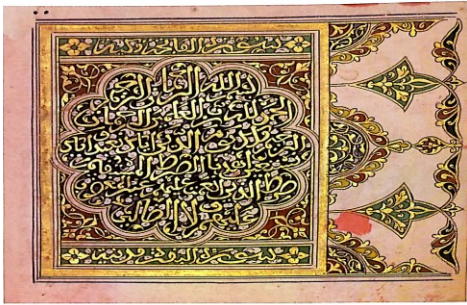 بسم الله الرحمن الرحيم
الحمد لله رب العالمين الرحمن
الرحيم ملك يوم الدين اياك نعبد واياك
نستعين اهدنا الصراط المستقيم
صراط الذين انعمت عليهم غير المغضوب
عليهم ولا الضالين